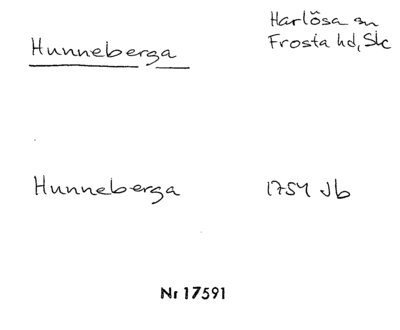 Hunneberga
Harlösa sn
Frosta hd, Sk
Hunneberga
1754 Jb
Nr 17591